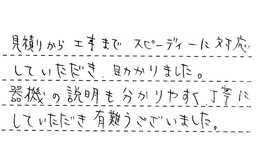 見積りから工事までスピーディーに対応
していただき、助かりました。
器機の説明も分かりやすく丁寧に
していただき有難うございました。